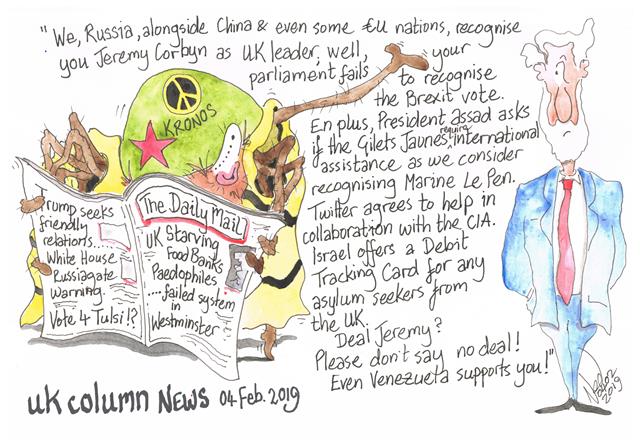 "We, Russia, alongside China & even some €U nations, recognise
you Jeremy Corbyn as UK leader, well, your
parliament fails to recognise
the Brexit vote.
En plus, President assad asks
if the Gilets Jaunes require international
assistance as we consider
recognising Marine Le Pen.
Twitter agrees to help in
collaboration with the CIA.
Israel offers a Debit
Tracking Card for any
asylum seekers from
the UK.
Deal Jeremy?
Please don't say no deal!
Even Venezuela supports you!"
KRONOS
Trump seeks
friendly
relations....
White House
Russiagate
Warning.
Vote 4 Tulsi!?
The Daily Mail
UK Starving
Food Banks
Paedophiles
....failed system
in
Westminster
UK COLUMN NEWS 04 Feb. 2019
2019